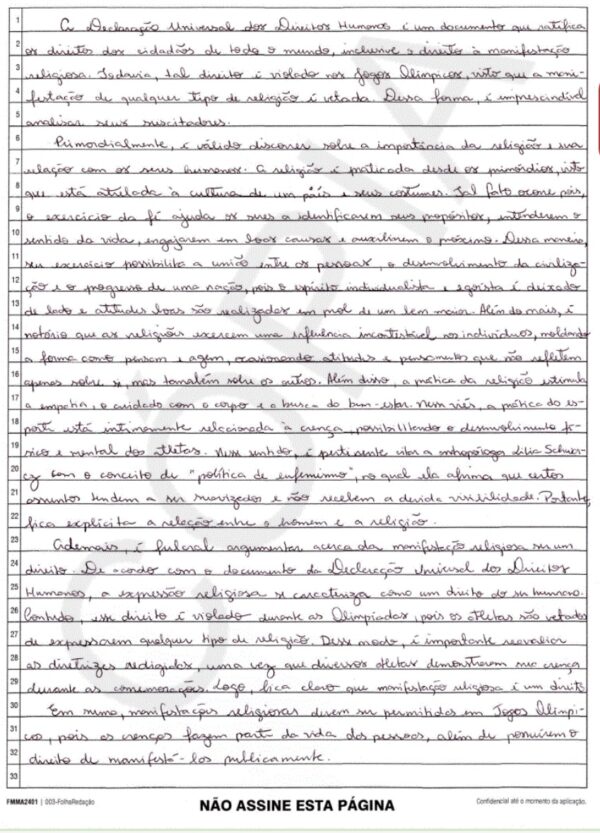 1 A Declaração Universal dos Direitos Humanos é um documento que ratifica
2 os direitos dos cidadãos de todo o mundo, inclusive o direito à manifestação
3 religiosa. Todavia, tal direito é violado nos Jogos Olímpicos, visto que a mani-
4 festação de qualquer tipo de religião é vetada. Dessa forma, é imprescindível
5 analisar seus suscitadores.
6 Primordialmente, é válido discorrer sobre a importância da religião e sua
7 relação com os seres humanos. A religião é praticada desde os primórdios, visto
8 que está atrelada à cultura de um país e seus costumes. Tal fato ocorre pois,
9 o exercício da fé ajuda os seres a identificarem seus propósitos, entenderem o
10 sentido da vida, engajarem em boas causas e auxiliarem o próximo. Dessa maneira,
11 seu exercício possibilita a união entre as pessoas, o desenvolvimento da civiliza-
12 ção e o progresso de uma nação, pois o espírito individualista e egoísta é deixado
13 de lado e atitudes boas são realizadas em prol de um bem maior. Além do mais, é
14 notório que as religiões exercem uma influência incontestável nos indivíduos, moldando
15 a forma como pensam e agem, ocasionando atitudes e pensamentos que não refletem
16 apenas sobre si, mas também sobre os outros. Além disso, a prática da religião estimula
17 a empatia, o cuidado com o corpo e a busca do bem-estar. Nesse viés, a prática do es-
18 porte está intimamente relacionada à crença, possibilitando o desenvolvimento fí-
19 sico e mental dos atletas. Nesse sentido, é pertinente citar a antropóloga Lilia Schwar-
20 cz com o conceito de "política de eufemismo", no qual ela afirma que certos
21 assuntos tendem a ser suavizados e não recebem a devida visibilidade. Portanto,
22 fica explícita a relação entre o homem e a religião.
23 Ademais, é fulcral argumentar acerca da manifestação religiosa ser um
24 direito. De acordo com o documento da Declaração Universal dos Direitos
25 Humanos, a expressão religiosa se caracteriza como um direito do ser humano.
26 Contudo, esse direito é violado durante as Olimpíadas, pois os atletas são vetados
27 de expressarem qualquer tipo de religião. Desse modo, é importante reavaliar
28 as diretrizes redigidas, uma vez que diversos atletas demonstraram sua crença
29 durante as comemorações. Logo, fica claro que manifestação religiosa é um direito.
30 Em suma, manifestações religiosas devem ser permitidas em Jogos Olímpi-
31 cos, pois as crenças fazem parte da vida das pessoas, além de possuírem o
32 direito de manifestá-las publicamente.
33
CÓPIA
FMMA2401 | 003-FolhaRedação
NÃO ASSINE ESTA PÁGINA
Confidencial até o momento da aplicação.